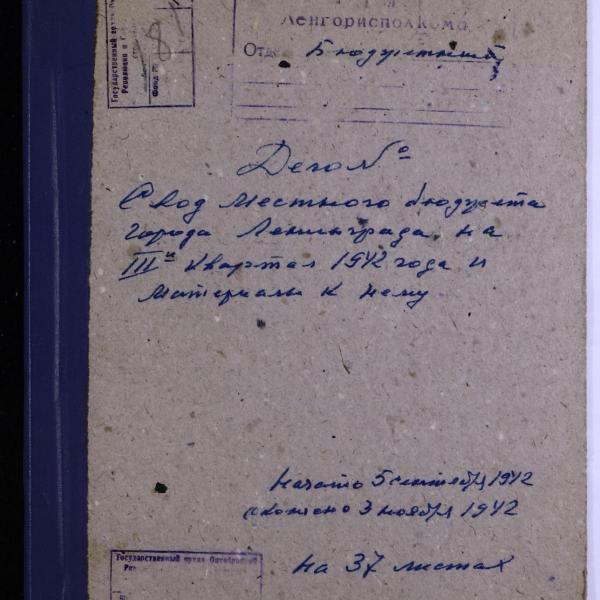 Государственный архив
Революции и
Фонд №
81
Ленгорисполкома
Отде Бюджетный
Дело №
Свод местного бюджета
города Ленинграда на
III й квартал 1942 года и
материалы к нему
Начато 5 сентября 1942
окончено 3 ноября 1942
на 37 листах
Государственный архив Октябрьской
Рев